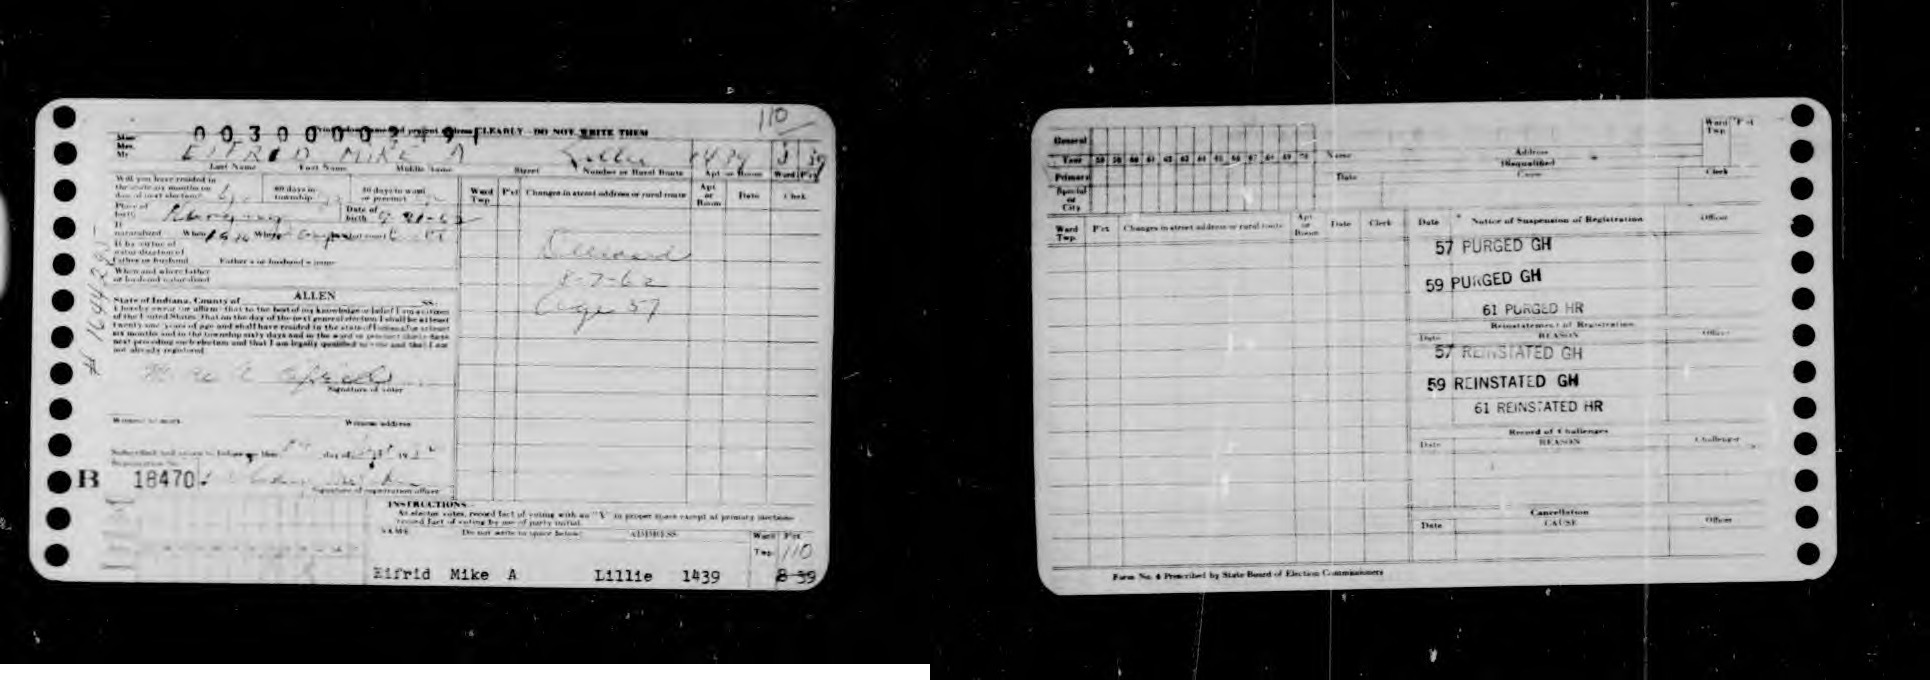 110
003000002491
CLEARLY - DO NOT WRITE THEM
Miss
Mrs.
Mr.
EIFRID MIKE A Lillie 1439
Last Name First Name Middle Name Street Number or Rural Route Apt or Room Ward Pct
Will you have resided in
the state six months on
day of next election?
60 days in
township
30 days in ward
or precinct
Place of
birth
Hungary
Date of
birth
If
naturalized When Where
If by virtue of
naturalization of
Father or husband Father's or husband's name
When and where father
or husband naturalized
State of Indiana, County of ALLEN ss.
I hereby swear (or affirm) that to the best of my knowledge or belief I am a citizen
of the United States, that on the day of the next general election I shall be at least
twenty-one years of age and shall have resided in the state of Indiana for at least
six months and in the township sixty days and in the ward or precinct thirty days
next preceding such election and that I am legally qualified to vote and that I am
not already registered
Signature of voter
Witness to mark Witness address
Subscribed and sworn to before me this day of 19
Registration No.
B 18470
Signature of registration officer
Ward
Twp
P'ct
Changes in street address or rural route
Apt
or
Room
Date
Clerk
Deceased
8-7-62
Age 57
INSTRUCTIONS
As elector votes, record fact of voting with an "X" in proper space except at primary elections
record fact of voting by use of party initial.
NAME Do not write in space below ADDRESS Ward P'ct
Twp. 110
Eifrid Mike A Lillie 1439 8-39
General
Year 58 59 60 61 62 63 64 65 66 67 68 69 70
Primary
Special
or
City
Name Address
Disqualified
Date Cause Clerk
Ward
Twp.
P'ct
Ward
Twp.
P'ct
Changes in street address or rural route
Apt
or
Room
Date
Clerk
Date Notice of Suspension of Registration Officer
57 PURGED GH
59 PURGED GH
61 PURGED HR
Reinstatement of Registration
Date REASON Officer
57 REINSTATED GH
59 REINSTATED GH
61 REINSTATED HR
Record of Challenges
Date REASON Challenger
Cancellation
Date CAUSE Officer
Form No. 4 Prescribed by State Board of Election Commissioners